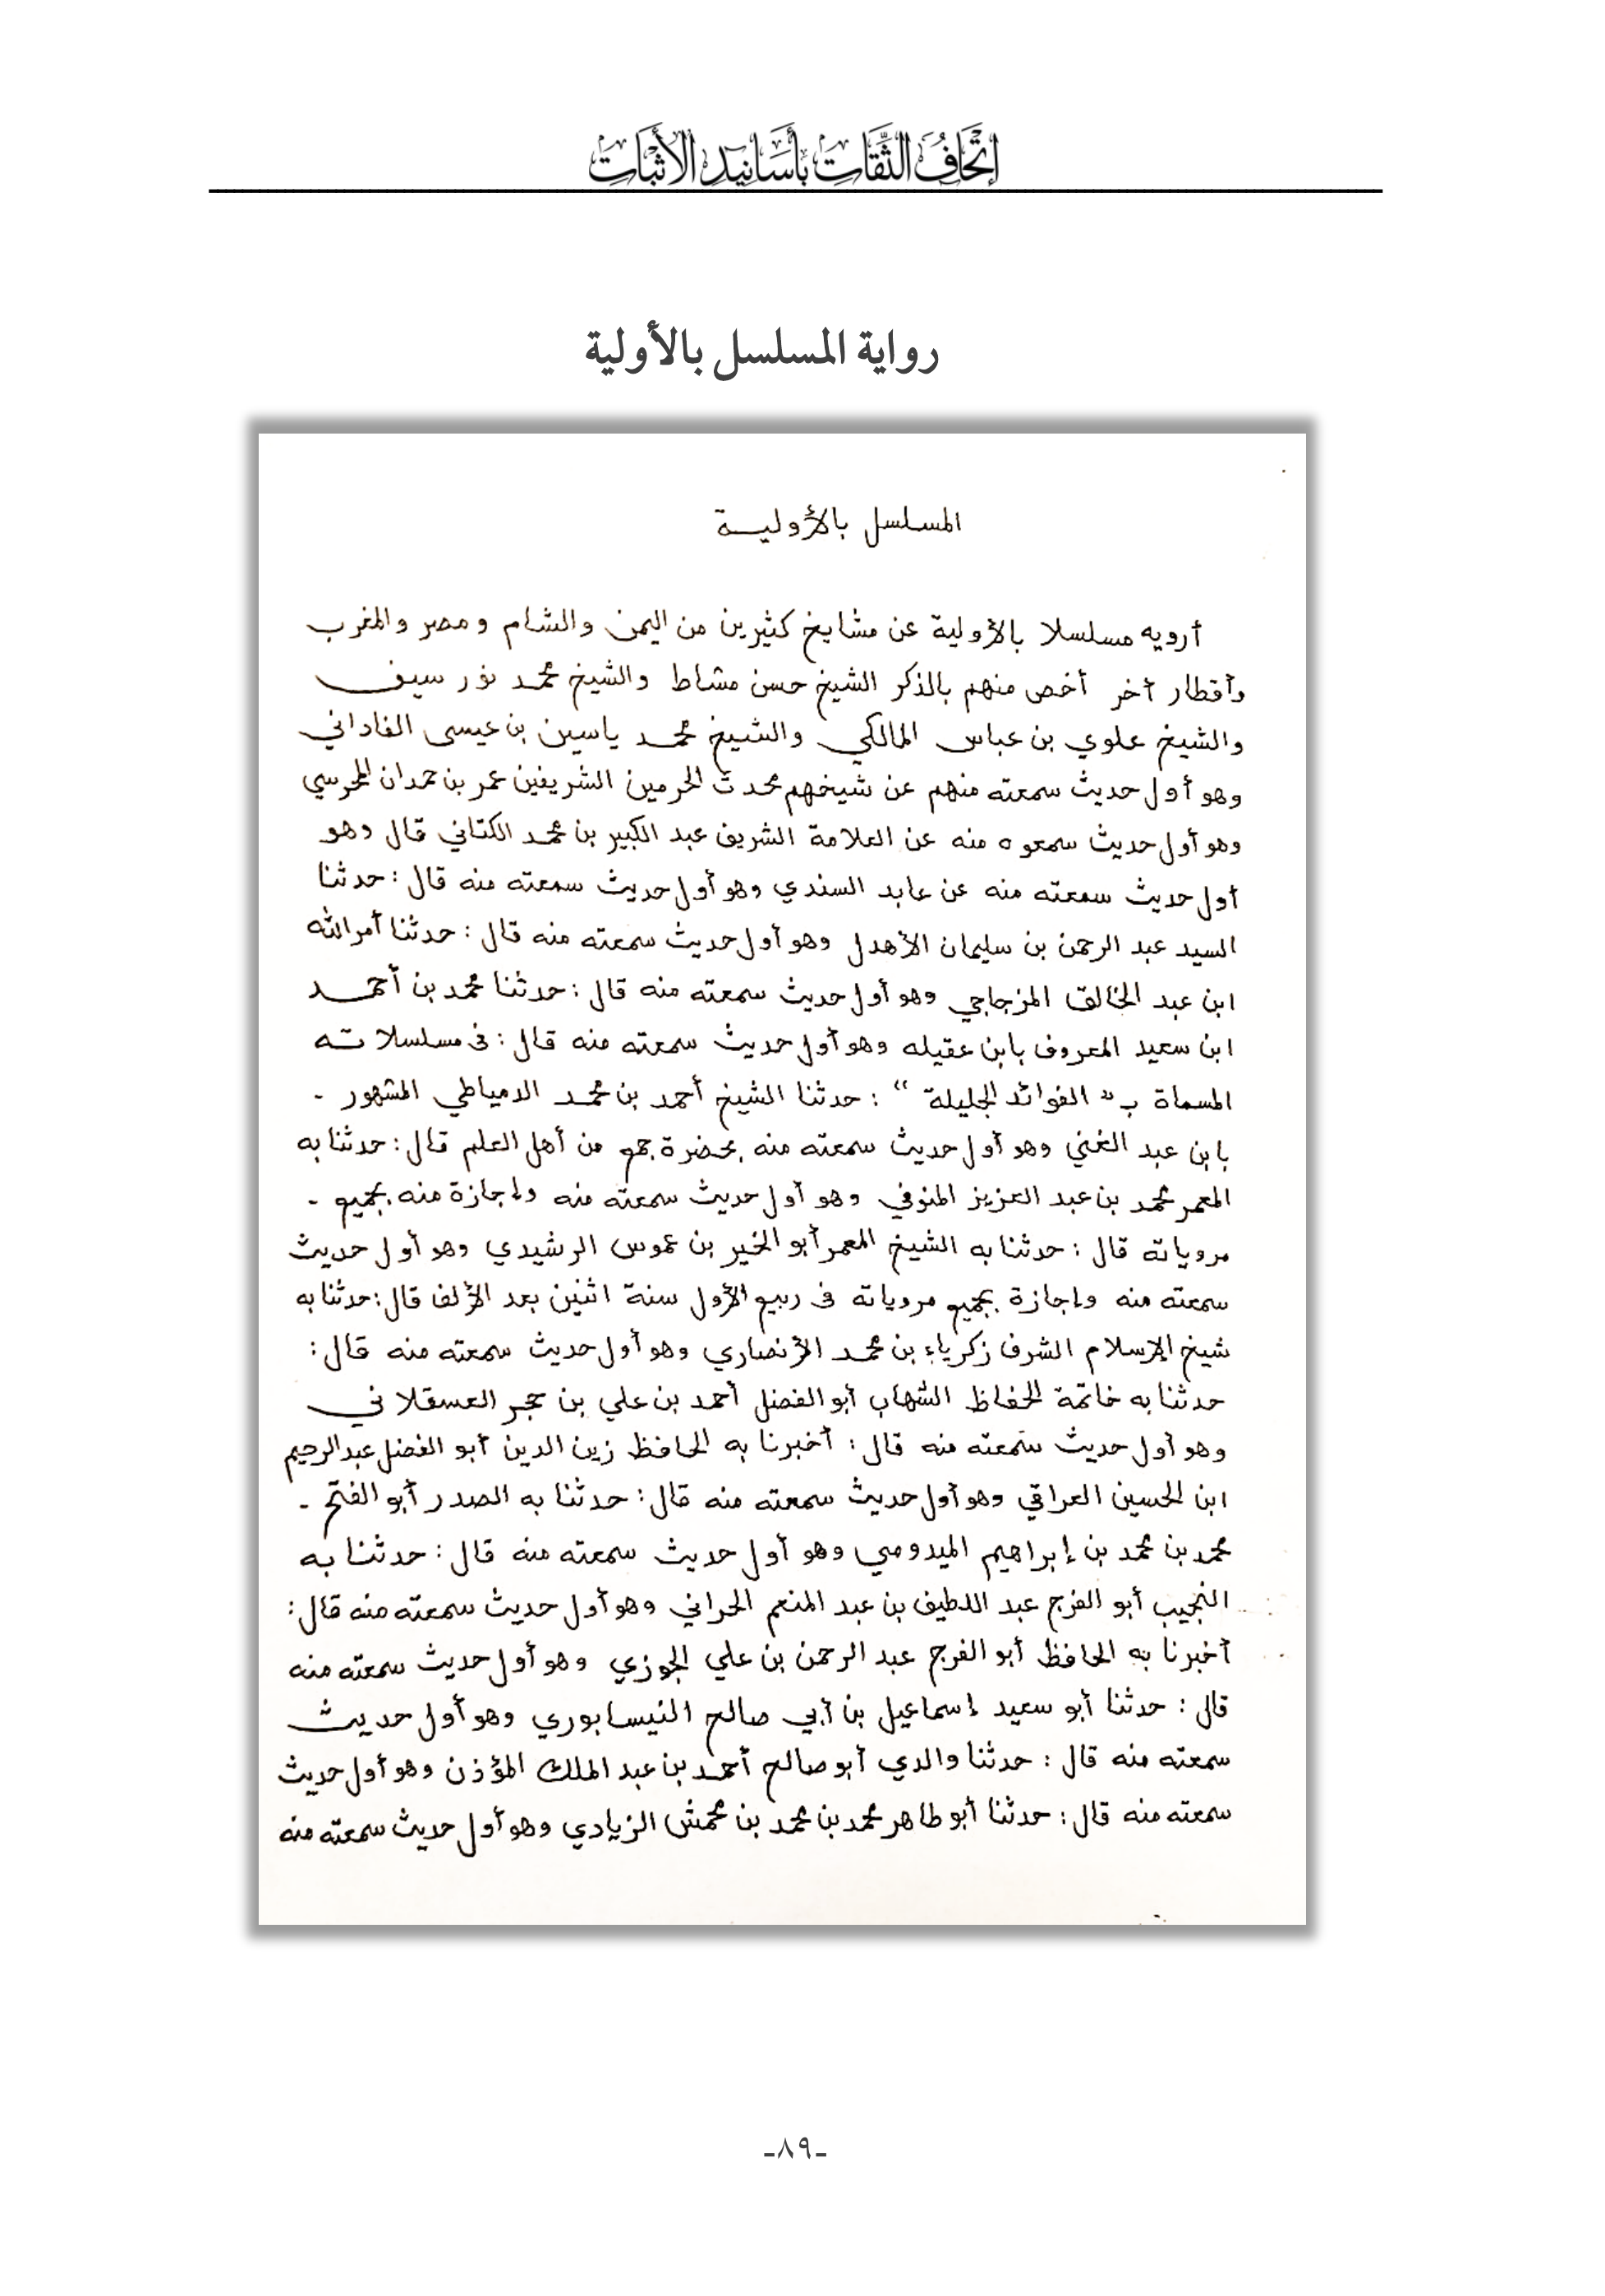 إتحاف الثقات بأسانيد الأثبات
رواية المسلسل بالأولية
المسلسل بالأوليـة
أرويه مسلسلا بالأولية عن مشايخ كثيرين من اليمن والشام ومصر والمغرب
وأقطار أخر أخص منهم بالذكر الشيخ حسن مشاط والشيخ محمد نور سيف
والشيخ علوي بن عباس المالكي والشيخ محمد ياسين بن عيسى الفاداني
وهو أول حديث سمعته منهم عن شيخهم محدث الحرمين الشريفين عمر بن حمدان المحرسي
وهو أول حديث سمعوه منه عن العلامة الشريف عبد الكبير بن محمد الكتاني قال وهو
أول حديث سمعته منه عن عابد السندي وهو أول حديث سمعته منه قال : حدثنا
السيد عبد الرحمن بن سليمان الأهدل وهو أول حديث سمعته منه قال : حدثنا أمر الله
ابن عبد الخالق المزجاجي وهو أول حديث سمعته منه قال : حدثنا محمد بن أحمد
ابن سعيد المعروف بابن عقيله وهو أول حديث سمعته منه قال : في مسلسلاته
المسماة بـ " الفوائد الجليلة " : حدثنا الشيخ أحمد بن محمد الدمياطي المشهور -
بابن عبد الغني وهو أول حديث سمعته منه بحضرة جمع من أهل العلم قال : حدثنا به
المعمر محمد بن عبد العزيز المنوفي وهو أول حديث سمعته منه وإجازة منه بجميع -
مروياته قال : حدثنا به الشيخ المعمر أبو الخير بن عموس الرشيدي وهو أول حديث
سمعته منه وإجازة بجميع مروياته في ربيع الأول سنة اثنين بعد الألف قال : حدثنا به
شيخ الإسلام الشرف زكرياء بن محمد الأنصاري وهو أول حديث سمعته منه قال :
حدثنا به خاتمة الحفاظ الشهاب أبو الفضل أحمد بن علي بن حجر العسقلاني
وهو أول حديث سمعته منه قال : أخبرنا به الحافظ زين الدين أبو الفضل عبد الرحيم
ابن الحسين العراقي وهو أول حديث سمعته منه قال : حدثنا به الصدر أبو الفتح -
محمد بن محمد بن إبراهيم الميدومي وهو أول حديث سمعته منه قال : حدثنا به
النجيب أبو الفرج عبد اللطيف بن عبد المنعم الحراني وهو أول حديث سمعته منه قال :
أخبرنا به الحافظ أبو الفرج عبد الرحمن بن علي الجوزي وهو أول حديث سمعته منه
قال : حدثنا أبو سعيد إسماعيل بن أبي صالح النيسابوري وهو أول حديث
سمعته منه قال : حدثنا والدي أبو صالح أحمد بن عبد الملك المؤذن وهو أول حديث
سمعته منه قال : حدثنا أبو طاهر محمد بن محمد بن محمش الزيادي وهو أول حديث سمعته منه
-٨٩-